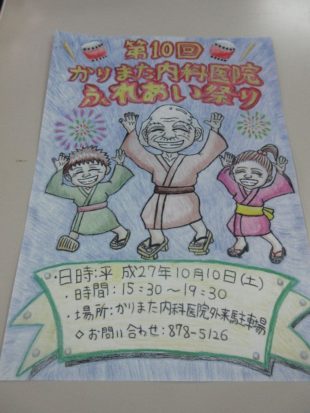 第10回
かりまた内科医院
ふれあい祭り
・日時:平成27年10月10日(土)
・時間:15:30〜19:30
・場所:かりまた内科医院外来駐車場
◇お問い合わせ:878-5126